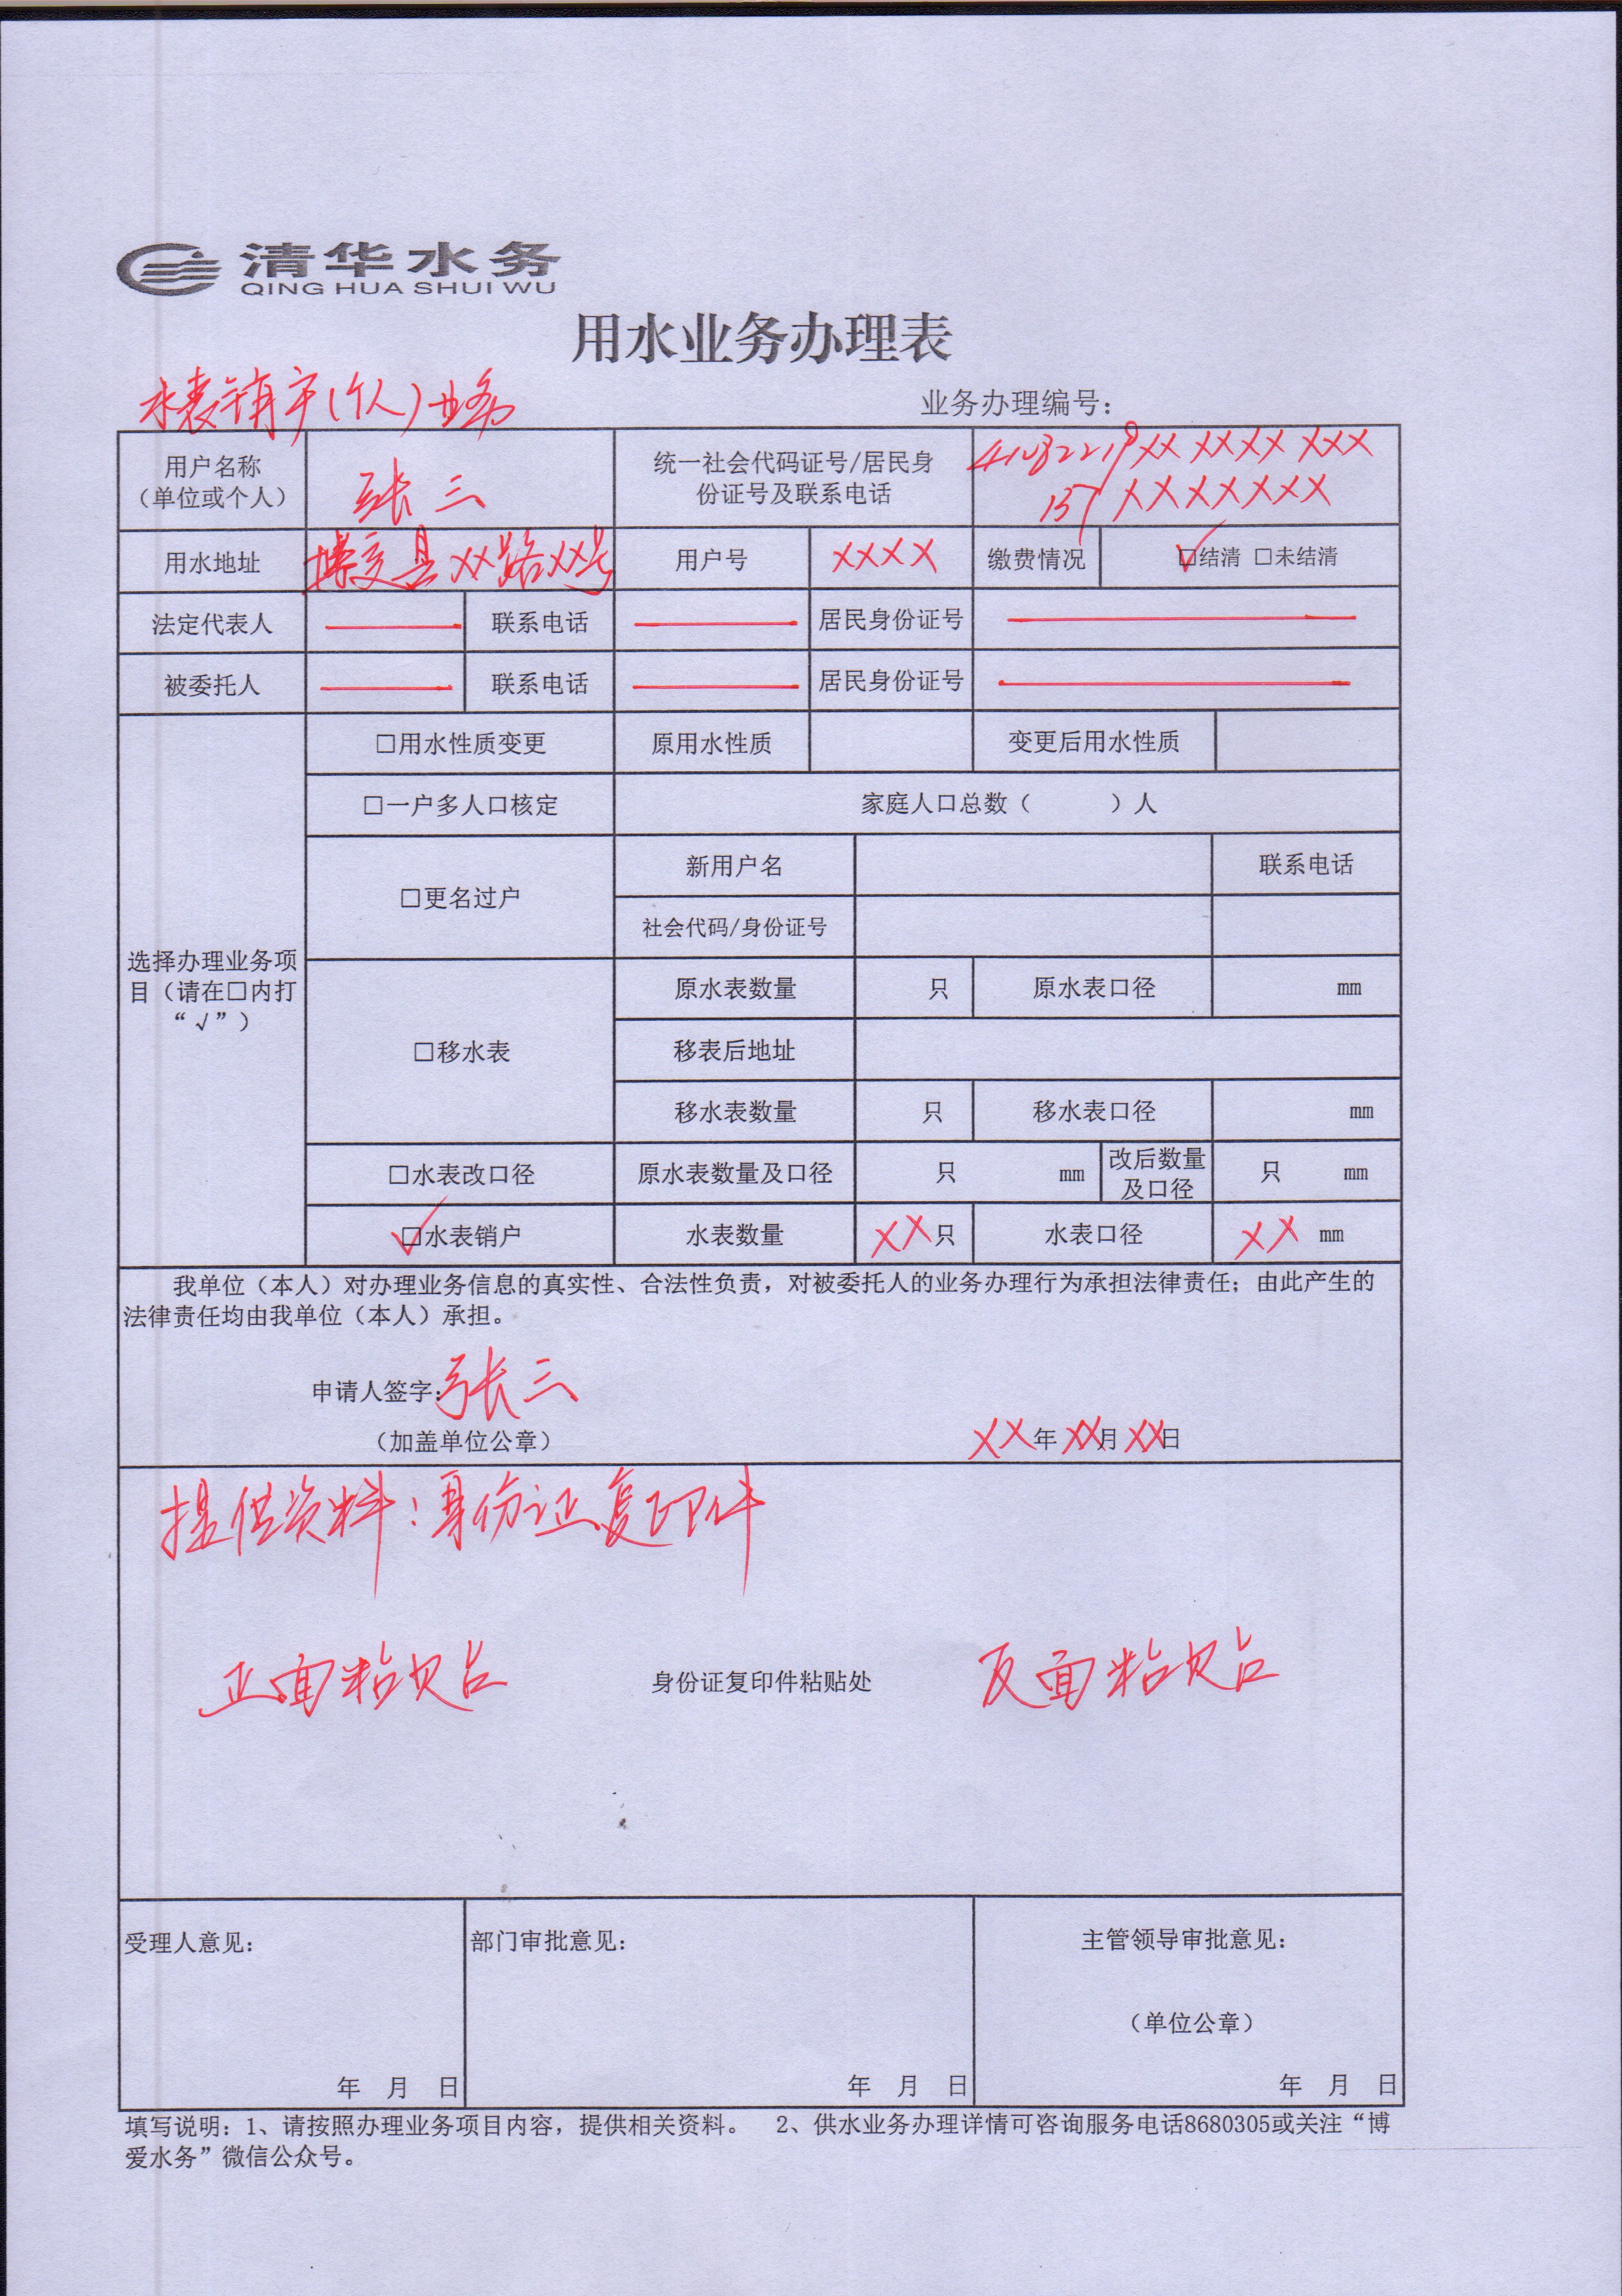 清华水务
QING HUA SHUI WU
用水业务办理表
水表销户(个人)业务
业务办理编号：
用户名称
（单位或个人）
张三
统一社会代码证号/居民身
份证号及联系电话
41082219XX XXXX XXX
157XXXXXXX
用水地址
博爱县XX路XX号
用户号
XXXX
缴费情况
☑结清 □未结清
法定代表人 —— 联系电话 —— 居民身份证号 ——
被委托人 —— 联系电话 —— 居民身份证号 ——
选择办理业务项
目（请在□内打
“√”）
□用水性质变更 原用水性质 变更后用水性质
□一户多人口核定 家庭人口总数（ ）人
□更名过户
新用户名 联系电话
社会代码/身份证号
□移水表
原水表数量 只 原水表口径 mm
移表后地址
移水表数量 只 移水表口径 mm
□水表改口径 原水表数量及口径 只 mm
改后数量
及口径
只 mm
☑水表销户 水表数量 XX只 水表口径 XX mm
我单位（本人）对办理业务信息的真实性、合法性负责，对被委托人的业务办理行为承担法律责任；由此产生的
法律责任均由我单位（本人）承担。
申请人签字：张三
（加盖单位公章）
XX年XX月XX日
提供资料：身份证复印件
正面粘贴 身份证复印件粘贴处 反面粘贴
受理人意见：
年 月 日
部门审批意见：
年 月 日
主管领导审批意见：
（单位公章）
年 月 日
填写说明：1、请按照办理业务项目内容，提供相关资料。 2、供水业务办理详情可咨询服务电话8680305或关注“博
爱水务”微信公众号。